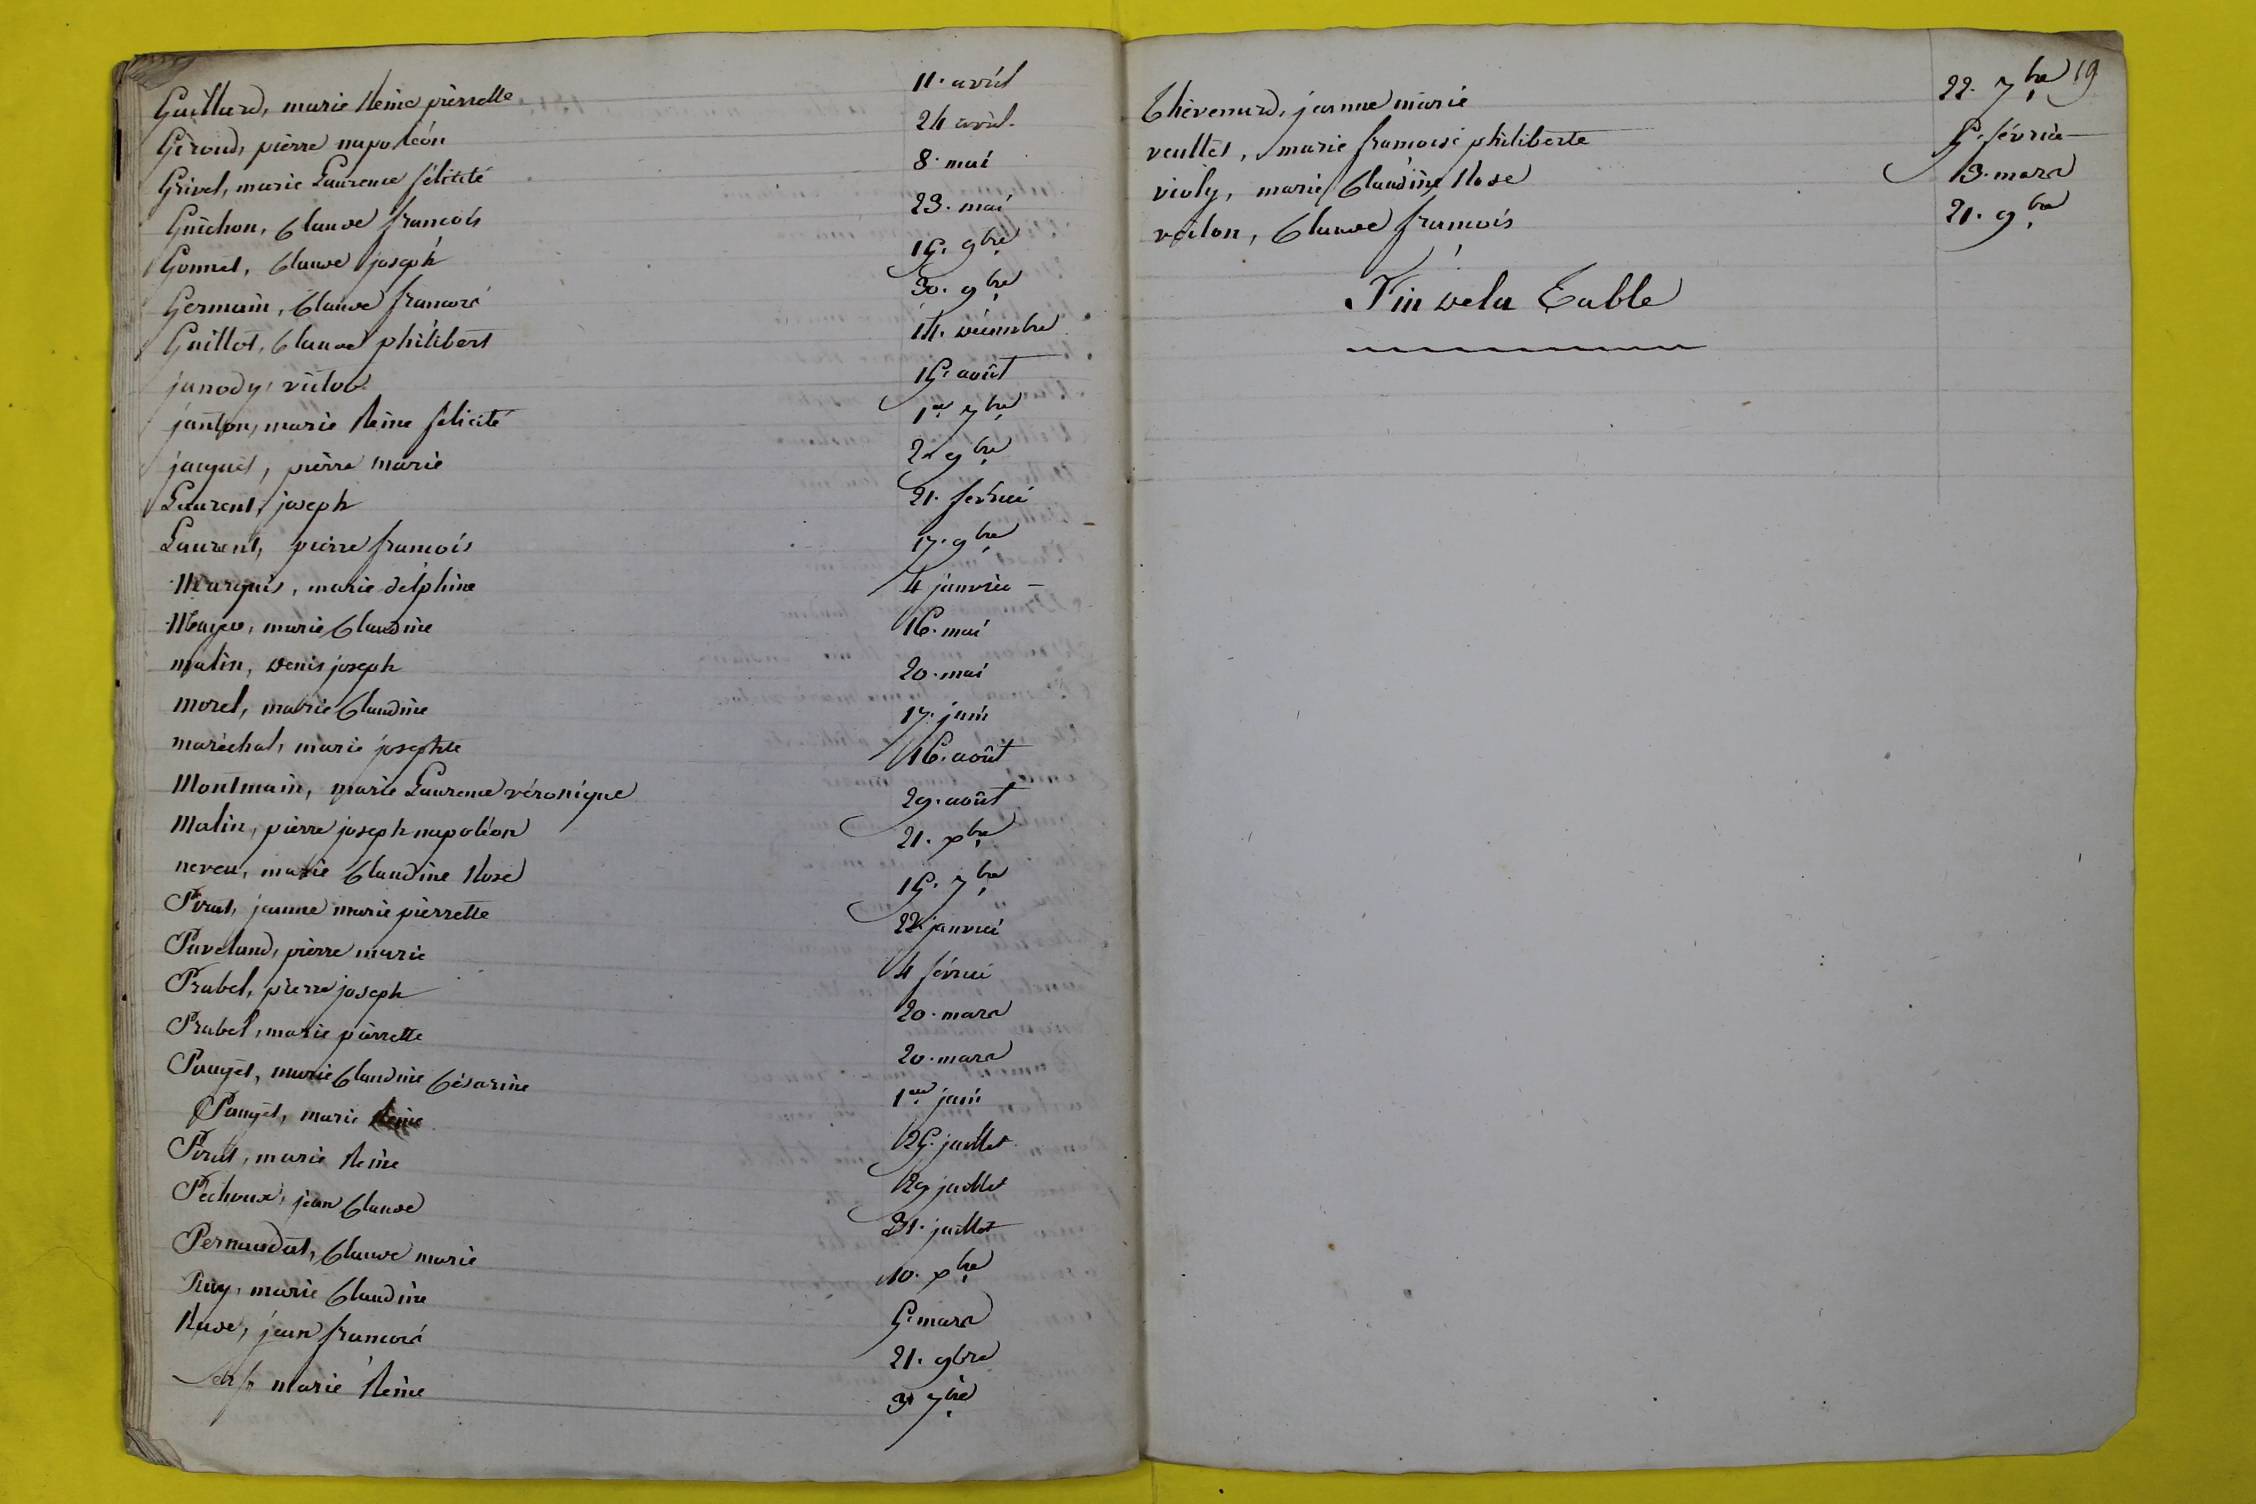 Guillard, marie Reine pierrette 11. avril
Giroud, pierre napoléon 24 avril.
Grivel, marie Laurence félicité 8. mai
Guichon, Claude francois 23. mai
Gonnet, Claude joseph 15. 9bre
Germain, Claude francois 30. 9bre
Guillot, Claude philibert 14. décembre
janody, victor 15. août
janton, marie Reine félicité 1er 7bre
jacquet, pierre marie 2. 9bre
Laurent, joseph 21. fevrier
Laurent, pierre francois 17. 9bre
Marquis, marie delphine 4 janvier
Mayer, marie Claudine 16. mai
matin, denis joseph 20. mai
morel, marie Claudine 17. juin
maréchal, marie josephte 16. août
Montmain, marie Laurence véronique 29. août
Matin, pierre joseph napoléon 21. xbre
neveu, marie Claudine Rose 15. 7bre
Pirat, jeanne marie pierrette 22. janvier
Paveland, pierre marie 4 février
Prabel, pierre joseph 20. mars
Prabel, marie pierrette 20. mars
Pauget, marie Claudine Césarine 1er juin
Pauget, marie Reine 25. juillet
Pirat, marie Reine 29 juillet
Pechoux, jean Claude 31. juillet
Pernaudat, Claude marie 10. xbre
Ruy, marie Claudine 5. mars
Rude, jean francois 21. 9bre
marie Reine 3. 7bre
19
Thévenard, jeanne marie 22. 7bre
veultes, marie francoise philiberte 5. février
violy, marie Claudine Rose 13. mars
voilon, Claude francois 21. 9bre
Fin de la Table